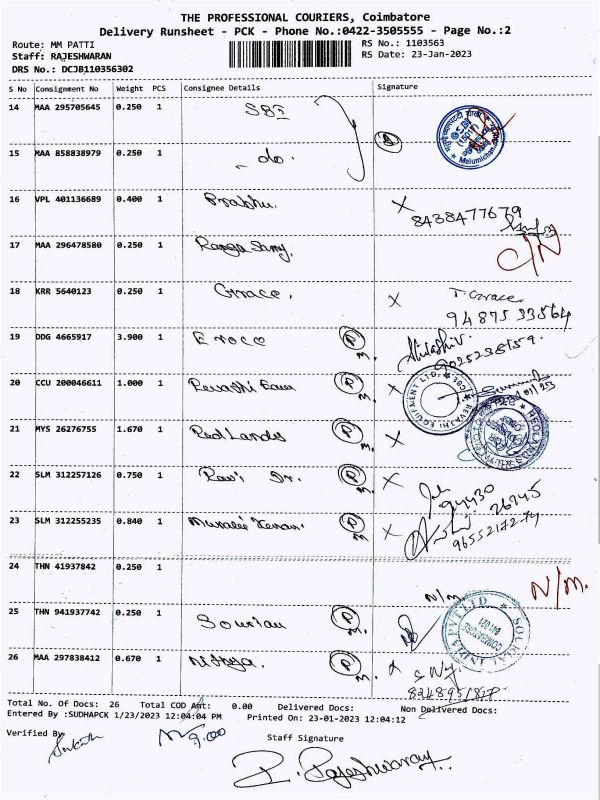 THE PROFESSIONAL COURIERS, Coimbatore
Delivery Runsheet - PCK - Phone No.:0422-3505555 - Page No.:2
Route: MM PATTI
RS No.: 1103563
Staff: RAJESHWARAN
RS Date: 23-Jan-2023
DRS No.: DCJB110356302
S No Consignment No Weight PCS Consignee Details Signature
14 MAA 295705645 0.250 1 SBI
15 MAA 858838979 0.250 1 do.
16 VPL 401136689 0.400 1 Prabhu. X 8438477679
17 MAA 296478580 0.250 1 Ranga Samy.
18 KRR 5640123 0.250 1 Grace. X T. Grace
94875 33564
19 DDG 4665917 3.900 1 Eroco P M.
9025236159.
20 CCU 200046611 1.000 1 P M. X
21 MYS 26276755 1.670 1 Red Lands P X
22 SLM 312257126 0.750 1 Ravi Dr. P M. X
94430 26745
23 SLM 312255235 0.840 1 P M. X
9655217274
24 THN 41937842 0.250 1 N/M N/M.
25 THN 941937742 0.250 1 Souriau P M.
26 MAA 297838412 0.670 1 Nithya. P M. X
Total No. Of Docs: 26 Total COD Amt: 0.00 Delivered Docs: Non Delivered Docs:
Entered By :SUDHAPCK 1/23/2023 12:04:04 PM Printed On: 23-01-2023 12:04:12
Verified By
9.00
Staff Signature
R. Rajeshwaran